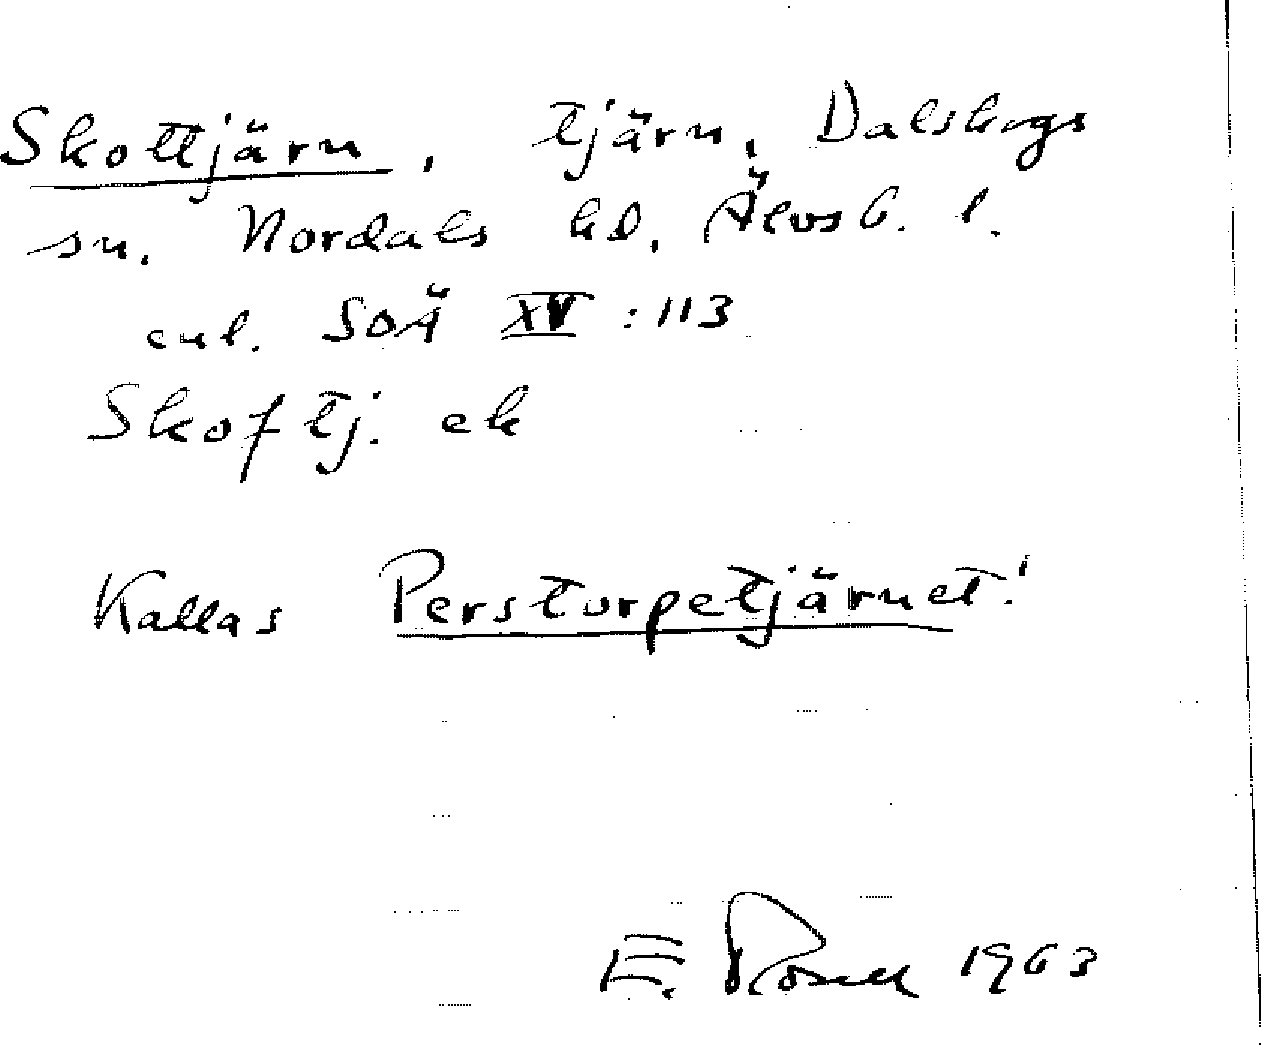 Skottjärn, tjärn, Dalskogs
sn. Nordals hd, Älvsb. l.
enl. SOÄ XV : 113
Skoftj. ek
Kallas Perstorpetjärnet!
E. Rosell 1963